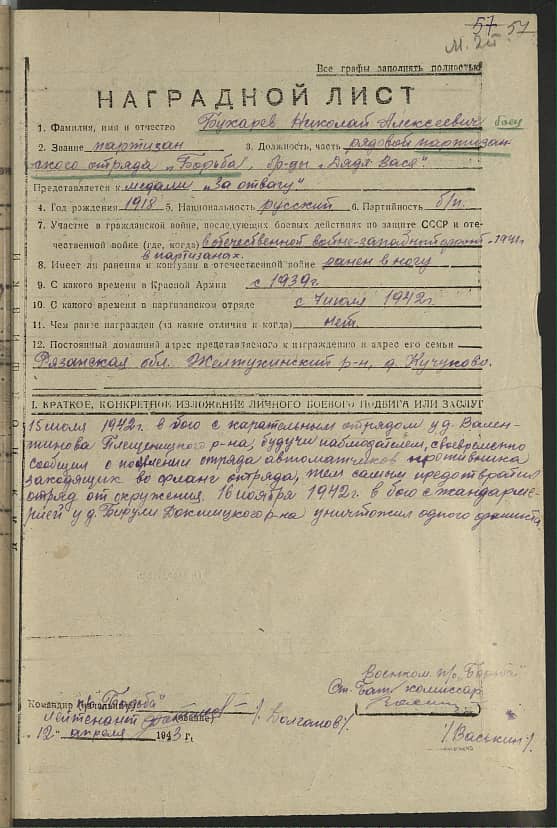 57 57
Все графы заполнять полностью
НАГРАДНОЙ ЛИСТ
1. Фамилия, имя и отчество Бухарев Николай Алексеевич боец
2. Звание партизан 3. Должность, часть рядовой партизан
ского отряда „Борьба", бр-ды „Дядя Вася".
Представляется к медали „За отвагу"
4. Год рождения 1918 5. Национальность русский 6. Партийность б/п.
7. Участие в гражданской войне, последующих боевых действиях по защите СССР и оте-
чественной войне (где, когда) в отечественной войне-западный фронт-1941г
в партизанах.
8. Имеет ли ранения и контузии в отечественной войне ранен в ногу
9. С какого времени в Красной Армии с 1939г.
10. С какого времени в партизанском отряде с 7 июля 1942г
11. Чем ранее награжден (за какие отличия и когда) нет.
12. Постоянный домашний адрес представляемого к награждению и адрес его семьи
Рязанская обл. Желтухинский р-н, д. Кучуково.
I. КРАТКОЕ, КОНКРЕТНОЕ ИЗЛОЖЕНИЕ ЛИЧНОГО БОЕВОГО ПОДВИГА ИЛИ ЗАСЛУГ
15 июля 1942г. в бою с карательным отрядом у д. Вален-
тинова Плещеницкого р-на, будучи наблюдателем, своевременно
сообщил о появлении отряда автоматчиков противника
заходящих во фланг отряда, тем самым предотвратил
отряд от окружения. 16 ноября 1942г. в бою с жандарме-
рией у д. Бирули Докшицкого р-на уничтожил одного фашиста.
Военком п/о „Борьба"
Командир п/о „Борьба" Ст. Бат. комиссар
Лейтенант (звание) /Долганов/.
"12" апреля 1943 г. /Васькин/